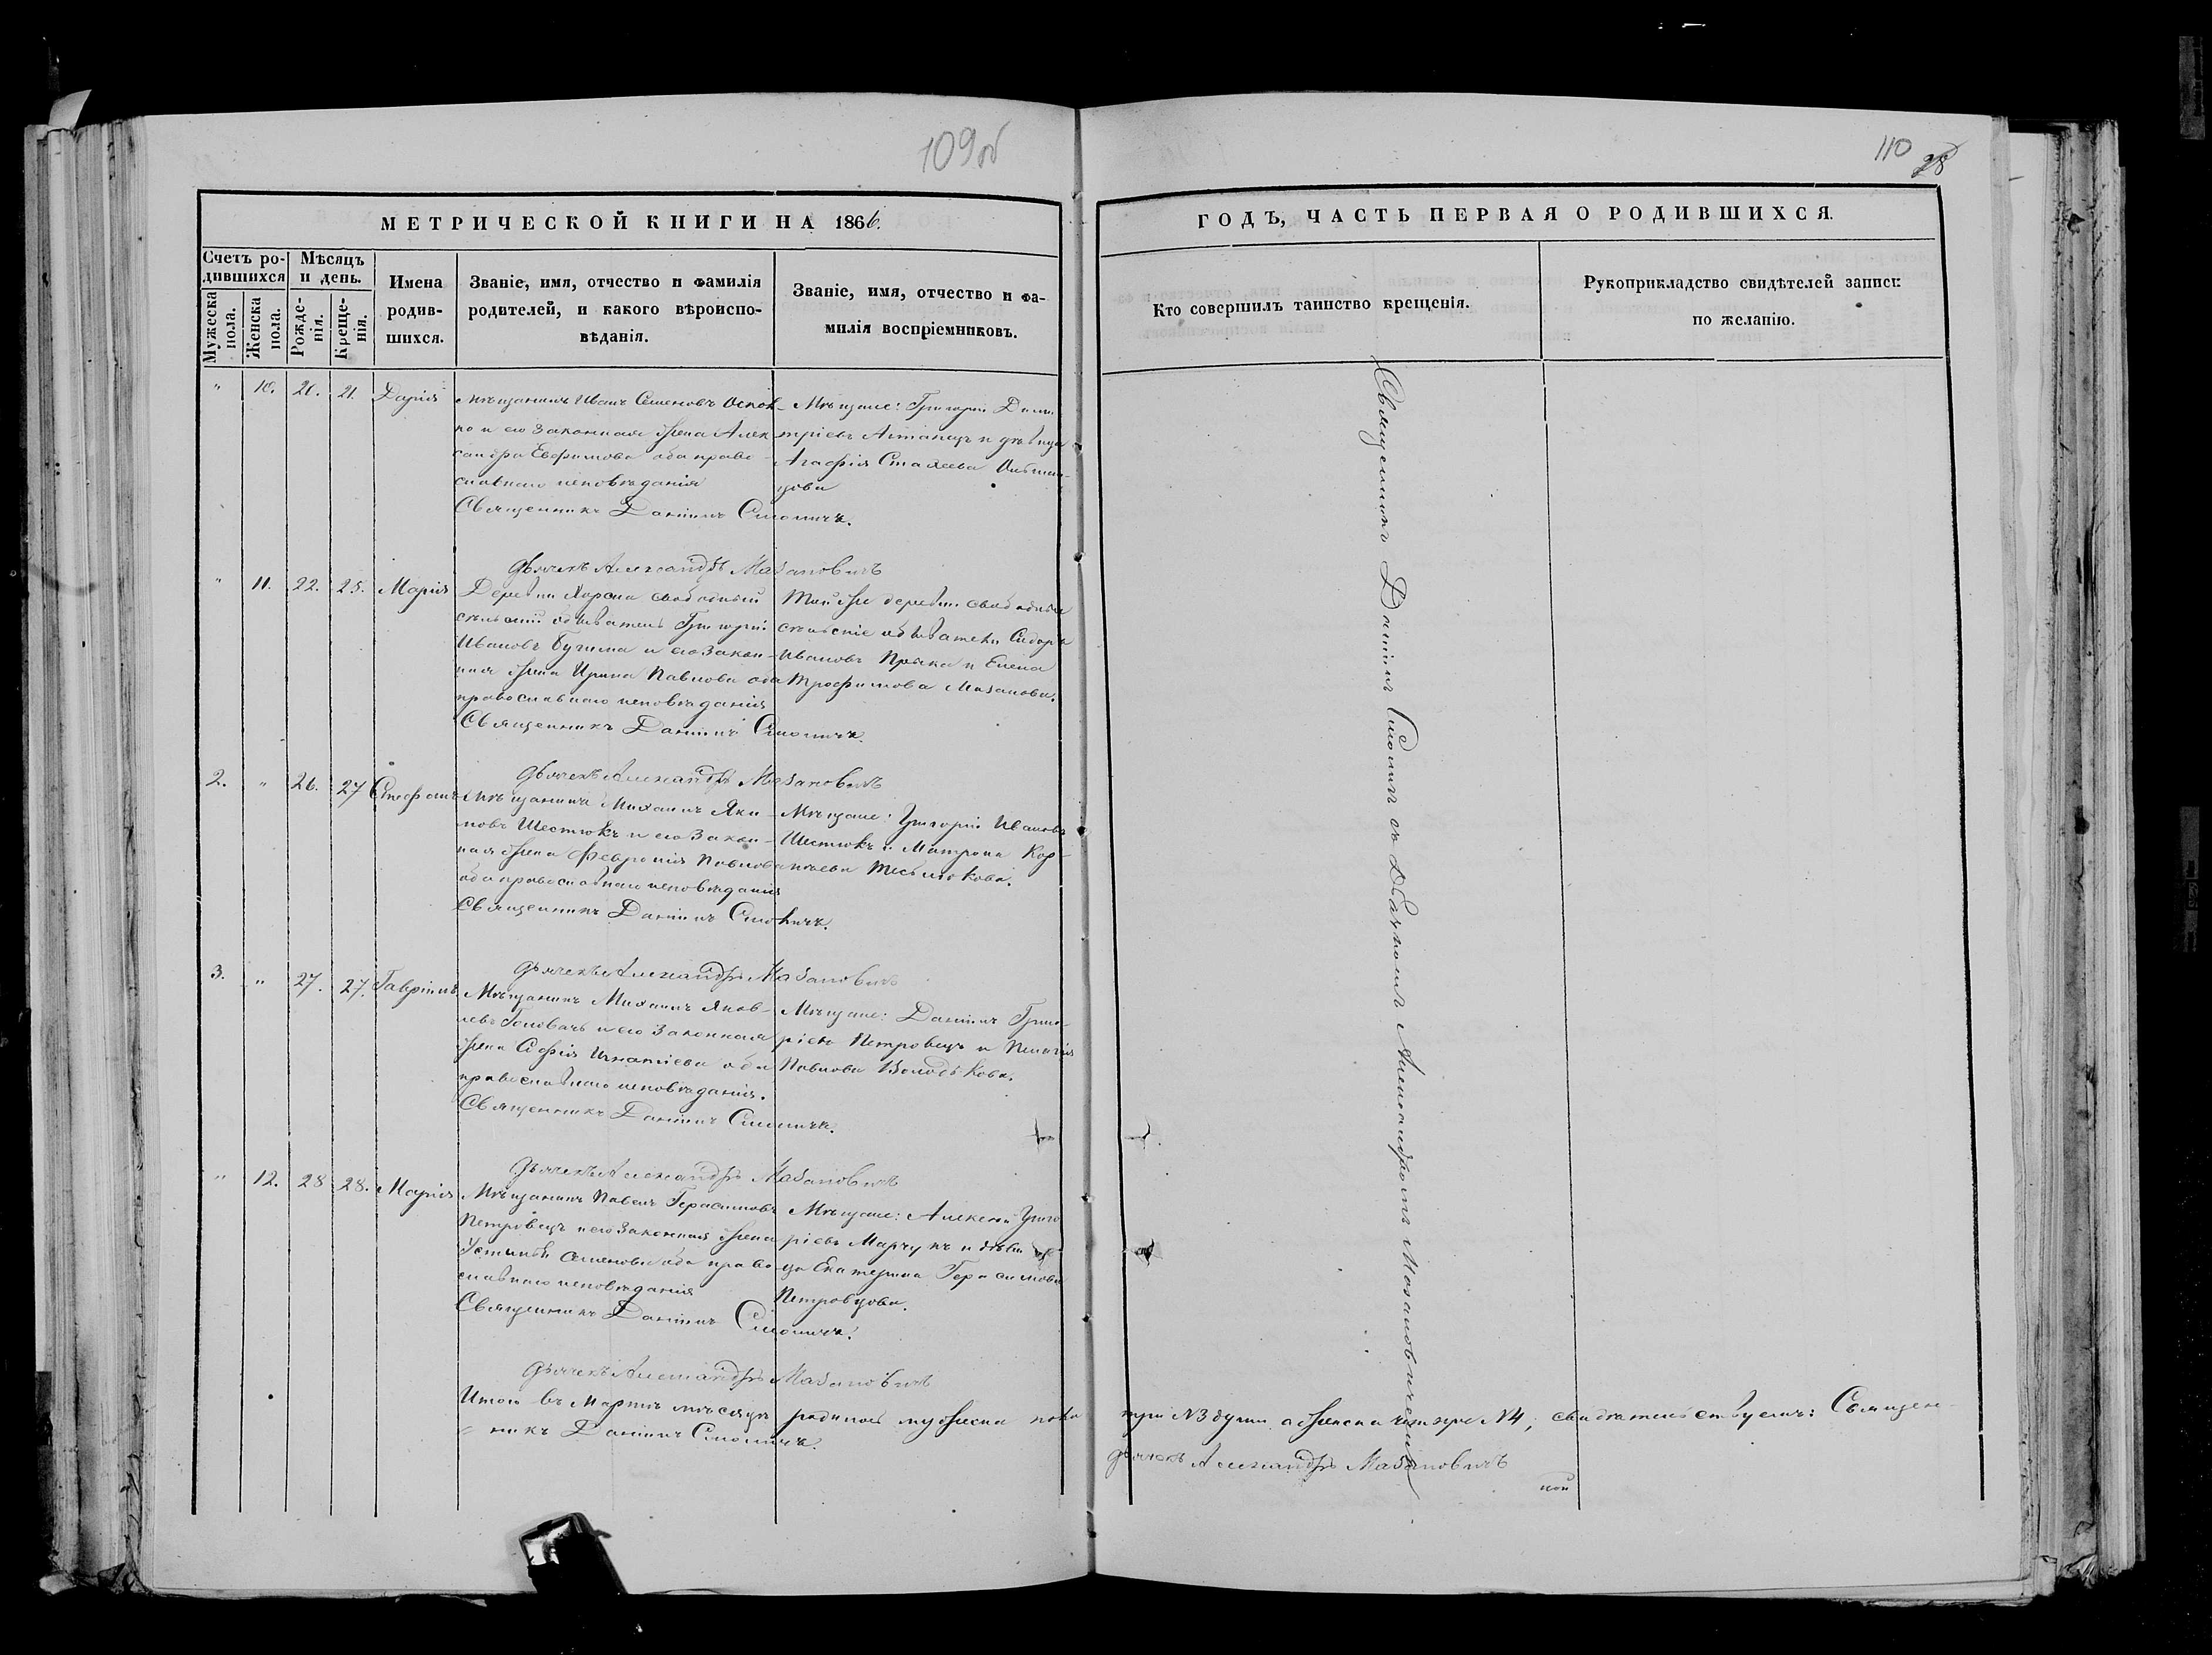 109об
110
28
МЕТРИЧЕСКОЙ КНИГИ НА 1866.
ГОДЪ, ЧАСТЬ ПЕРВАЯ О РОДИВШИХСЯ.
Счетъ родившихся
Мужеска пола.
Женска пола.
Мѣсяцъ и день.
Рожденія.
Крещенія.
Имена родившихся.
Званіе, имя, отчество и фамилія родителей, и какого вѣроисповѣданія.
Званіе, имя, отчество и фамилія воспріемниковъ.
Кто совершилъ таинство крещенія.
Рукоприкладство свидѣтелей записи по желанію.
" 10. 20. 21. Дарія
Мѣщанинъ Иванъ Семеновъ
но и его законная жена Алек-
сандра Евфимова оба право-
славнаго исповѣданія
Священникъ Даніилъ Смоличъ.
Мѣщане: Григорій Дими-
тріевъ и дѣвица
Агафія
цова
Дьячекъ Александръ Мазановичъ
" 11. 22. 25. Марія
Деревни свободный
сельскій обыватель Григорій
Ивановъ и его закон-
ная жена Ирина Павлова оба
православнаго исповѣданія
Священникъ Даніилъ Смоличъ.
Той же деревни свободные
сельскіе обыватели Сидоръ
Ивановъ и Елена
Трофимова Мазанова.
Дьячекъ Александръ Мазановичъ
2. " 26. 27 Стефанъ
Мѣщанинъ Михаилъ Яки-
мовъ Шестюкъ и его закон-
ная жена Феѵронія Павлова
оба православнаго исповѣданія
Священникъ Даніилъ Смоличъ.
Мѣщане: Григорій Ивановъ
Шестюкъ и Матрона Кор-
нѣева
Дьячекъ Александръ Мазановичъ
3. " 27. 27. Гавріилъ
Мѣщанинъ Михаилъ Яков-
левъ Головачъ и его законная
жена Софія Игнатіева оба
православнаго исповѣданія.
Священникъ Даніилъ Смоличъ.
Мѣщане: Даніилъ Григо-
ріевъ Петровецъ и Пелагія
Павлова Володькова.
Дьячекъ Александръ Мазановичъ
" 12. 28 28. Марія
Мѣщанинъ Павелъ Герасимовъ
Петровецъ и его законная жена
Устинія Семенова оба право-
славнаго исповѣданія
Священникъ Даніилъ Смоличъ.
Мѣщане: Алексей Григо-
ріевъ Марчукъ и дѣви-
ца Екатерина Герасимова
Петровцова.
Дьячекъ Александръ Мазановичъ
Итого въ Мартѣ мѣсяцѣ родилось мужеска пола три №3 души а женска четыре №4, свидѣтельствуемъ: Священ-
никъ Даніилъ Смоличъ.
Дьячекъ Александръ Мазановичъ
Священникъ Даніилъ Смоличъ съ дьячкомъ Александромъ Мазановичемъ